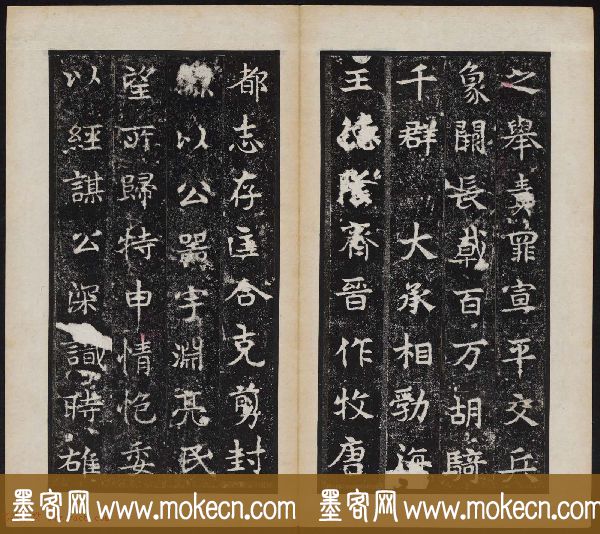 之舉責罪宣平交兵
象闕長戟百万胡騎
千群大承相勃海
王德隆齊晉作牧唐
都志存匡合克剪封
以公器宇淵亮民
望所歸特申情怉委
以經謀公深識時雄
墨客网 www.mokecn.com 墨客网 www.mokecn.com